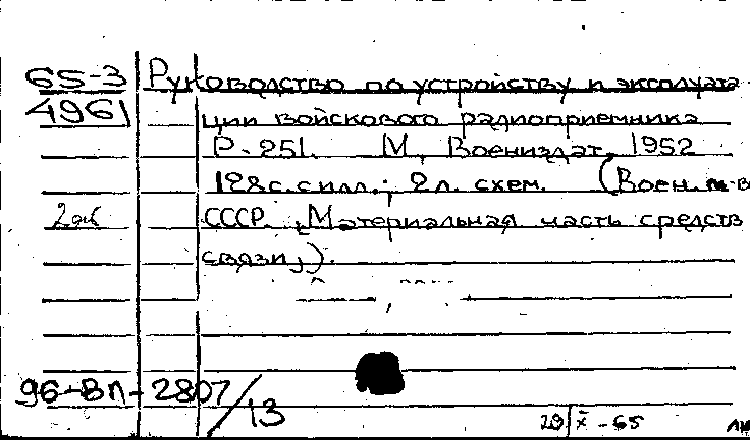 65-3 Руководство по устройству и эксплуата-
4961 ции войскового радиоприемника
Р-251. М., Воениздат, 1952
128 с. с илл.; 2 л. схем. (Воен. м-в
2 экз СССР. „Материальная часть средств
связи„).
96-ВЛ-2807/13
29/X-65